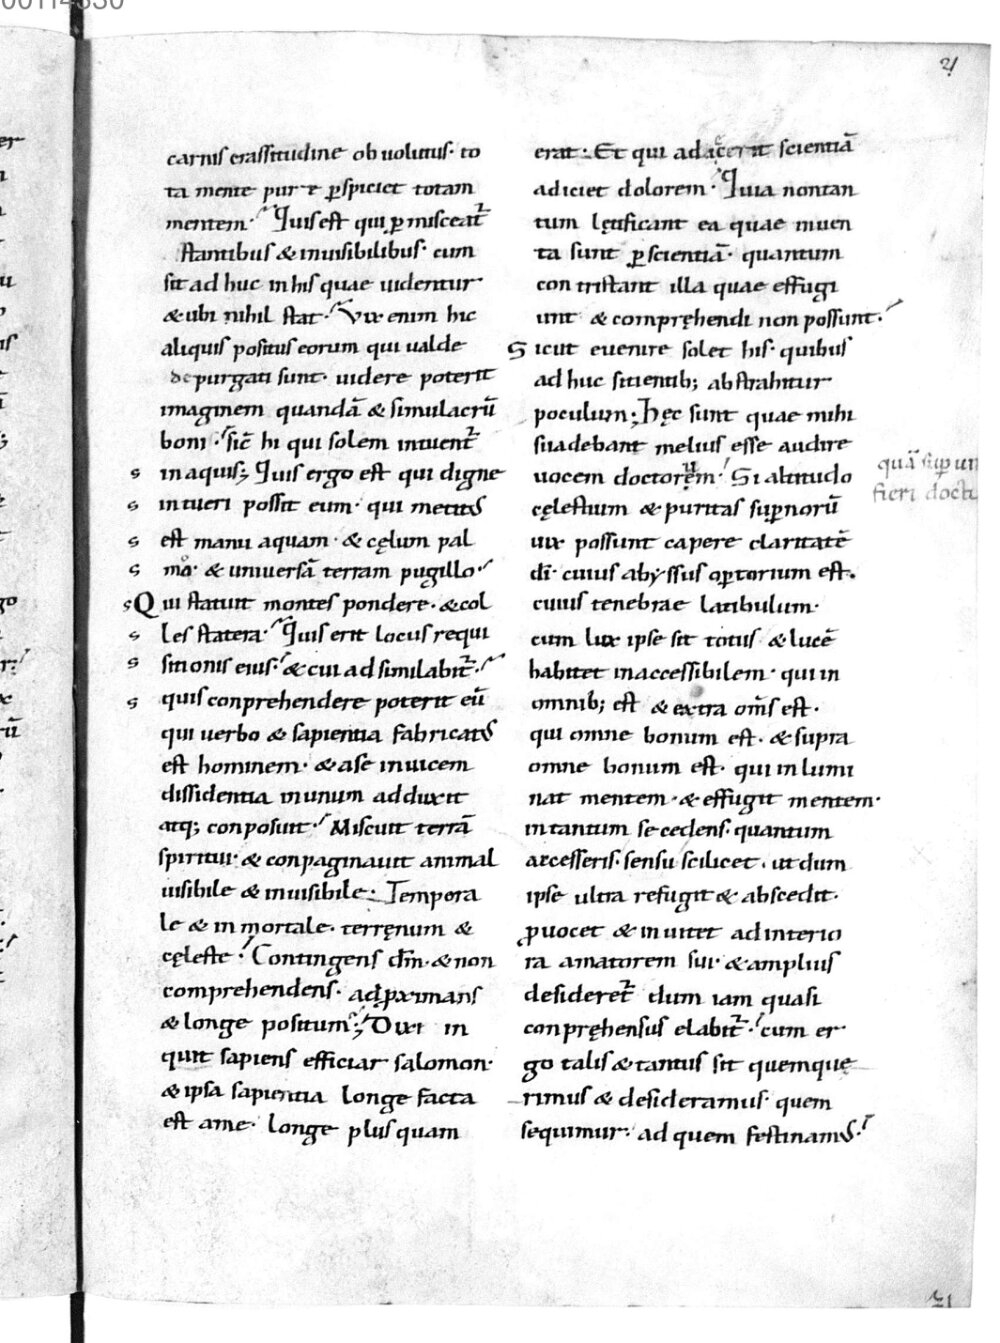 21
carnis crassitudine obuolutus· to
ta mente pure ꝑspiciet totam
mentem· Quis est qui ꝑmisceat᷑
stantibus & inuisibilibus· cum
sit ad huc in his quae uidentur
& ubi nihil stat· Vix enim hic
aliquis positus eorum qui ualde
depurgati sunt· uidere poterit
imaginem quandā & simulacrū
boni· sic̄ hi qui solem intuent᷑
s in aquis; Quis ergo est qui digne
s intueri possit eum· qui mensus
s est manu aquam· & cęlum pal
s mo· & uniuersā terram pugillo·
s Qui statuit montes pondere· & col
s les statera· Quis erit locus requi
s sitionis eius· & cui adsimilabit᷑·
s quis conprehendere poterit eū
qui uerbo & sapientia fabricatus
est hominem· & a se inuicem
dissidentia in unum adduxit
atq; conposuit· Miscuit terrā
spiritui· & conpaginauit animal
uisibile & inuisibile· Tempora
le & inmortale· terrenum &
cęleste· Contingens dm̄· & non
comprehendens· adꝓximans
& longe positum; Dixi in
quit sapiens efficiar salomon·
& ipsa sapientia longe facta
est a me· longe plus quam
erat· Et qui adacerit scientiā
adiciet dolorem· Quia non tan
tum lętificant ea quae inuen
ta sunt ꝑ scientiā· quantum
contristant illa quae effugi
unt & compręhendi non possunt·
Sicut euenire solet his· quibus
ad huc sitientib; abstrahitur
poculum; Hęc sunt quae mihi
suadebant melius esse audire
uocem doctorem· Si altitudo
cęlestium & puritas suꝑnorū
uix possunt capere claritatē
dī· cuius abyssus oꝑtorium est·
cuius tenebrae latibulum·
cum lux ipse sit totus & lucē
habitet inaccessibilem· qui in
omnib; est & extra om̄s est·
qui omne bonum est· & supra
omne bonum est· qui inlumi
nat mentem· & effugit mentem·
in tantum secedens· quantum
arcesseris· sensu scilicet· ut dum
ipse ultra refugit & abscedit·
ꝓuocet & inuitet ad interio
ra amatorem sui· & amplius
desideret᷑ dum iam quasi
compręhensus elabit᷑· cum er
go talis & tantus sit quemque
rimus & desideramus· quem
sequimur· ad quem festinamus·
quā suꝑ
fieri